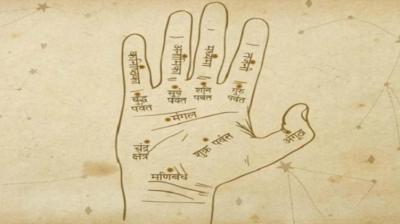 कनिष्ठिका
अनामिका
मध्यमा
तर्जनी
बुद्ध
पर्वत
सूर्य
पर्वत
शनि
पर्वत
गुरु
पर्वत
मंगल
चंद्र
क्षेत्र
शुक्र पर्वत
अंगुष्ठ
मणिबंध